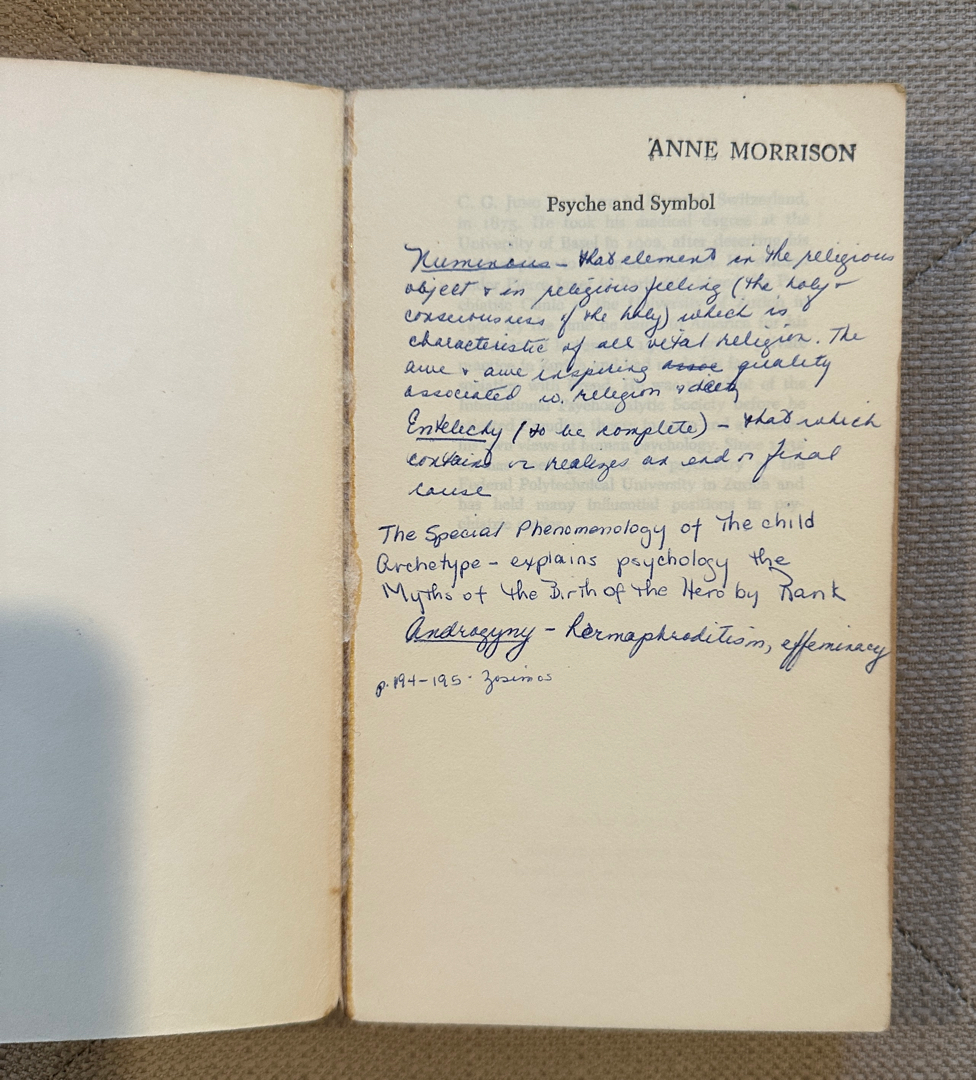 ANNE MORRISON
Psyche and Symbol
Numinous – that element in the religious
object + in religious feeling (the holy +
consciousness of the holy) which is
characteristic of all vital religion. The
awe + awe inspiring assoc quality
associated w. religion + deity
Entelechy (to be complete) – that which
contains or realizes an end or final
cause
The Special Phenomenology of The child
Archetype – explains psychology the
Myths of the Birth of the Hero by Rank
Androgyny – hermaphroditism, effeminacy
p. 194–195. Zosimos